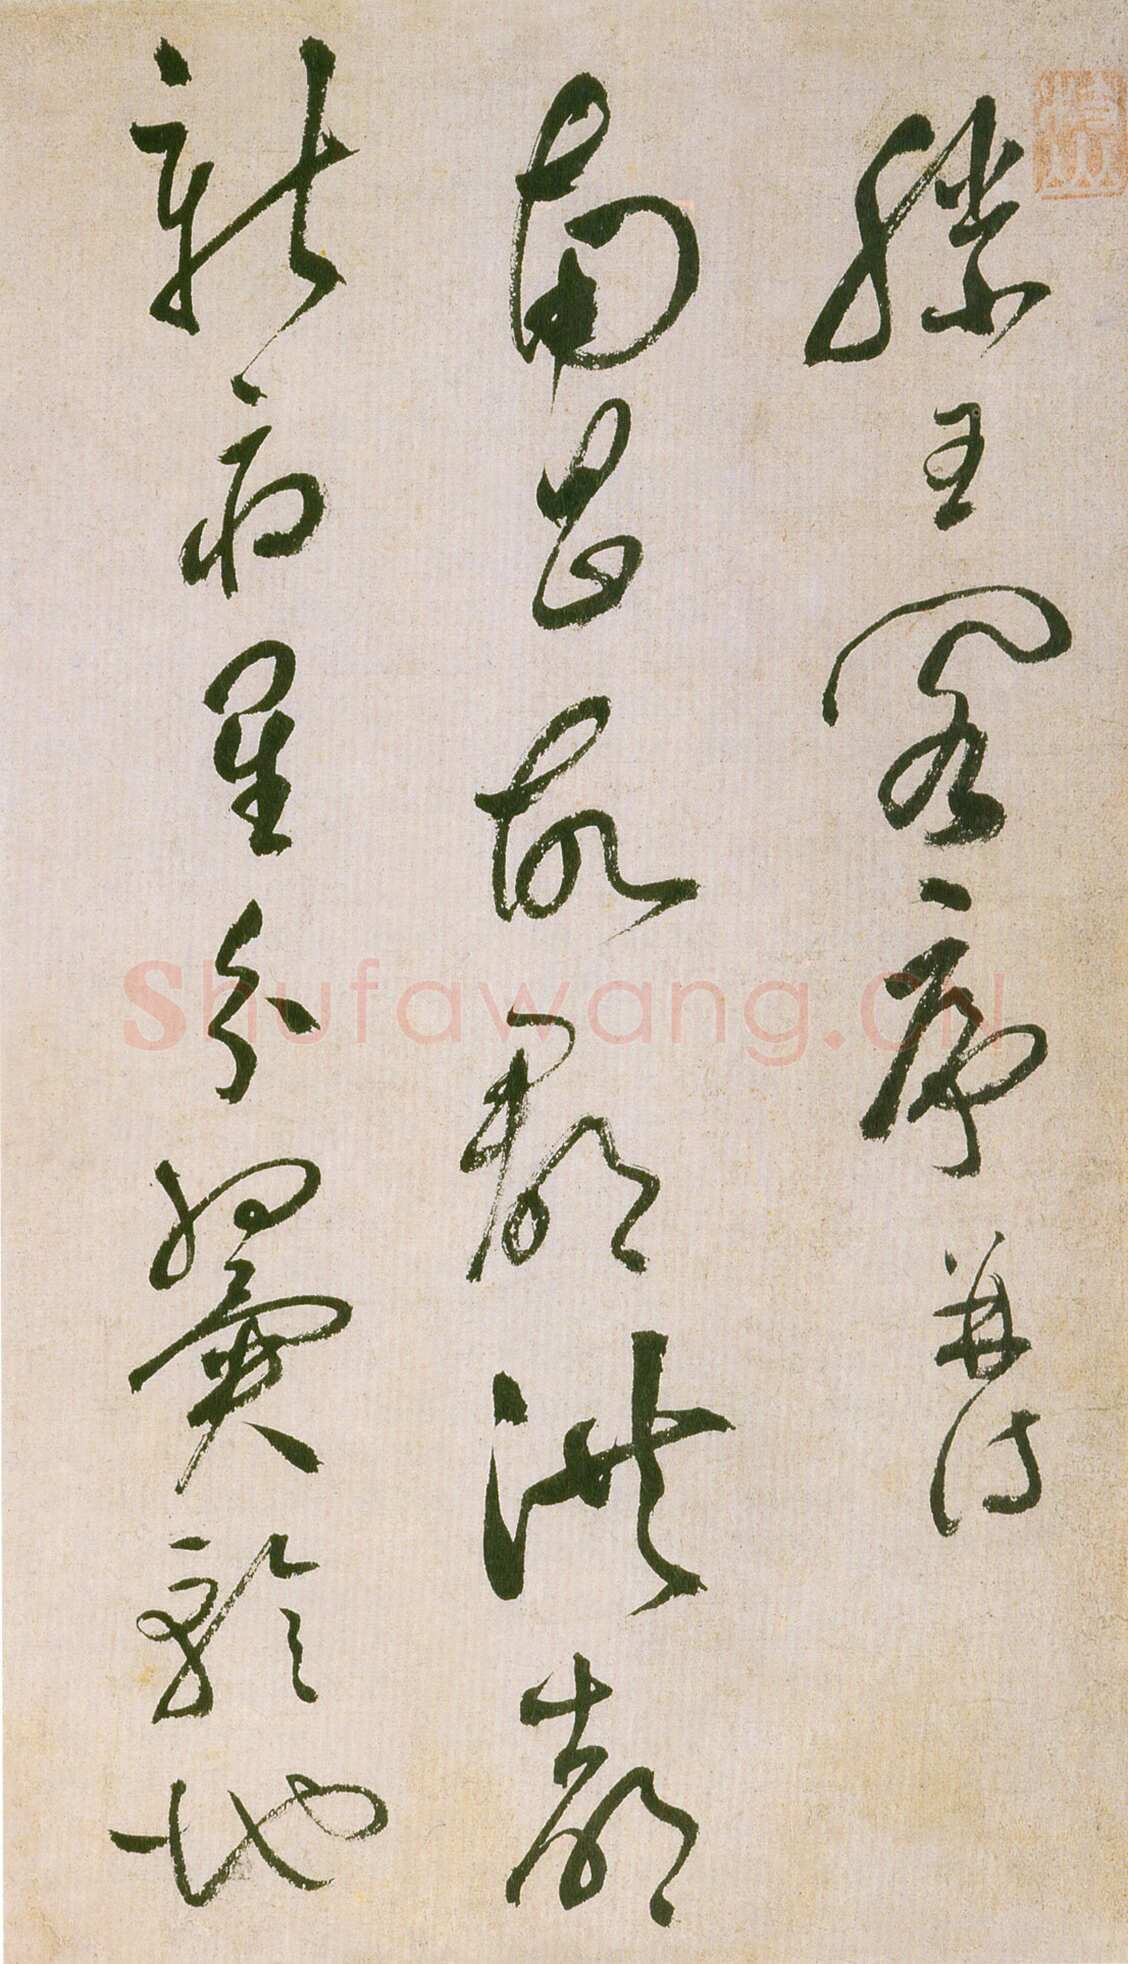 滕王閣序 并詩
南昌故郡洪都
新府星分翼軫地
shufawang.cn